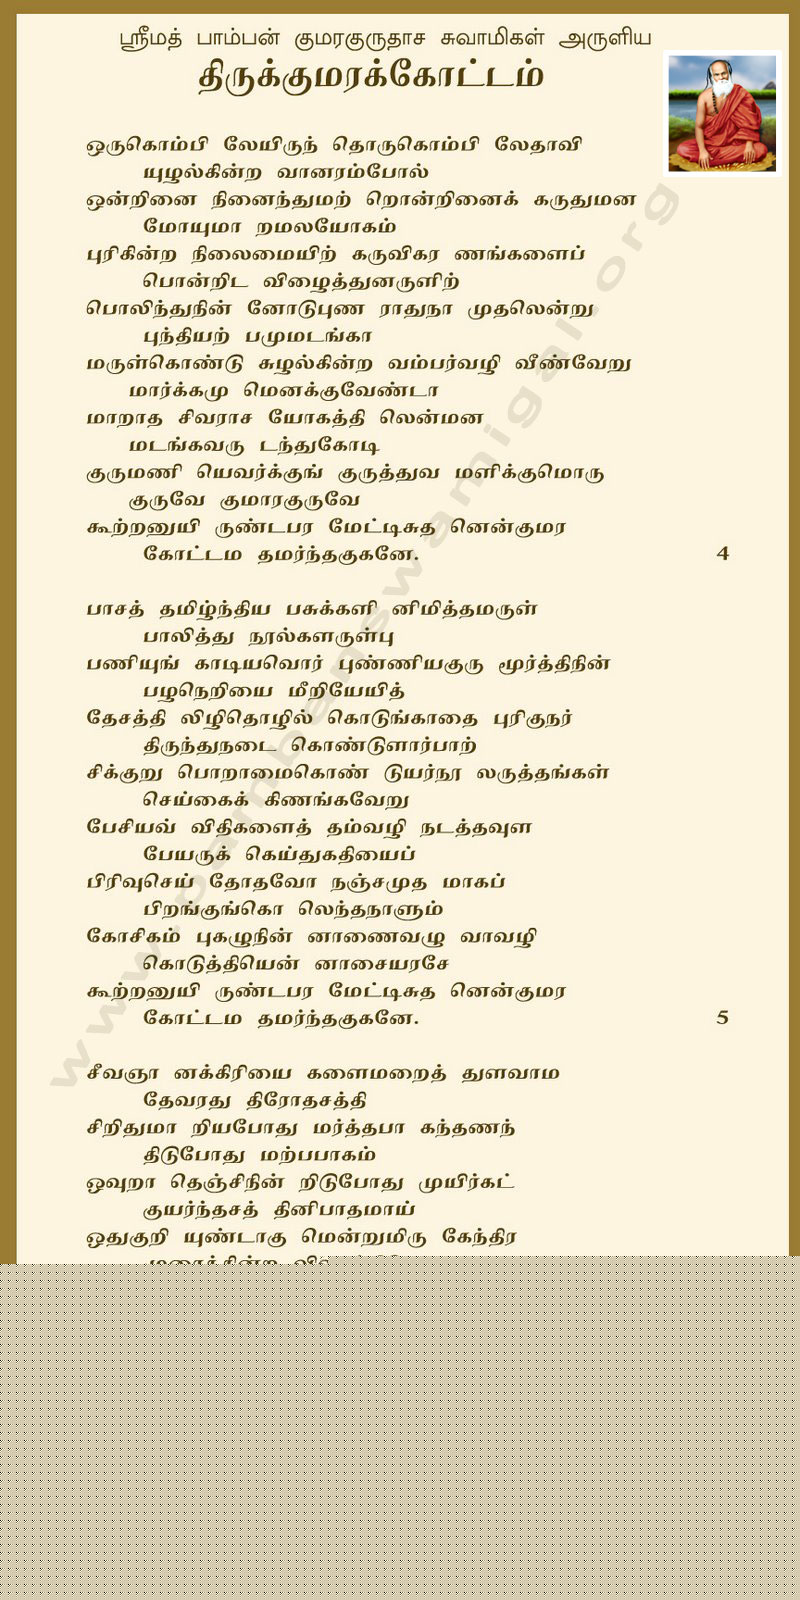 ஸ்ரீமத் பாம்பன் குமரகுருதாச சுவாமிகள் அருளிய
திருக்குமரக்கோட்டம்
ஒருகொம்பி லேயிருந் தொருகொம்பி லேதாவி
யுழல்கின்ற வானரம்போல்
ஒன்றினை நினைந்துமற் றொன்றினைக் கருதுமன
மோயுமா றமலயோகம்
புரிகின்ற நிலைமையிற் கருவிகர ணங்களைப்
பொன்றிட விழைத்துனருளிற்
பொலிந்துநின் னோடுபுண ராதுநா முதலென்று
புந்தியற் பமுமடங்கா
மருள்கொண்டு சுழல்கின்ற வம்பர்வழி வீண்வேறு
மார்க்கமு மெனக்குவேண்டா
மாறாத சிவராச யோகத்தி லென்மன
மடங்கவரு டந்துகோடி
குருமணி யெவர்க்குங் குருத்துவ மளிக்குமொரு
குருவே குமாரகுருவே
கூற்றனுயி ருண்டபர மேட்டிசுத னென்குமர
கோட்டம தமர்ந்தகுகனே. 4
பாசத் தமிழ்ந்திய பசுக்களி னிமித்தமருள்
பாலித்து நூல்களருள்பு
பணியுங் காடியவொர் புண்ணியகுரு மூர்த்திநின்
பழநெறியை மீறியேயித்
தேசத்தி லிழிதொழில் கொடுங்காதை புரிகுநர்
திருந்துநடை கொண்டுளார்பாற்
சிக்குறு பொறாமைகொண் டுயர்நூ லருத்தங்கள்
செய்கைக் கிணங்கவேறு
பேசியவ் விதிகளைத் தம்வழி நடத்தவுள
பேயருக் கெய்துகதியைப்
பிரிவுசெய் தோதவோ நஞ்சமுத மாகப்
பிறங்குங்கொ லெந்தநாளும்
கோசிகம் புகழுநின் னாணைவழு வாவழி
கொடுத்தியென் னாசையரசே
கூற்றனுயி ருண்டபர மேட்டிசுத னென்குமர
கோட்டம தமர்ந்தகுகனே. 5
சீவஞா னக்கிரியை களைமறைத் துளவாம
தேவரது திரோதசத்தி
சிறிதுமா றியபோது மர்த்தபா கந்தணந்
திடுபோது மற்பபாகம்
ஒவுறா தெஞ்சிநின் றிடுபோது முயிர்கட்
குயர்ந்தசத் தினிபாதமாய்
ஒதுகுறி யுண்டாகு மென்றுமிரு கேந்திர
www.pambanswamigal.org